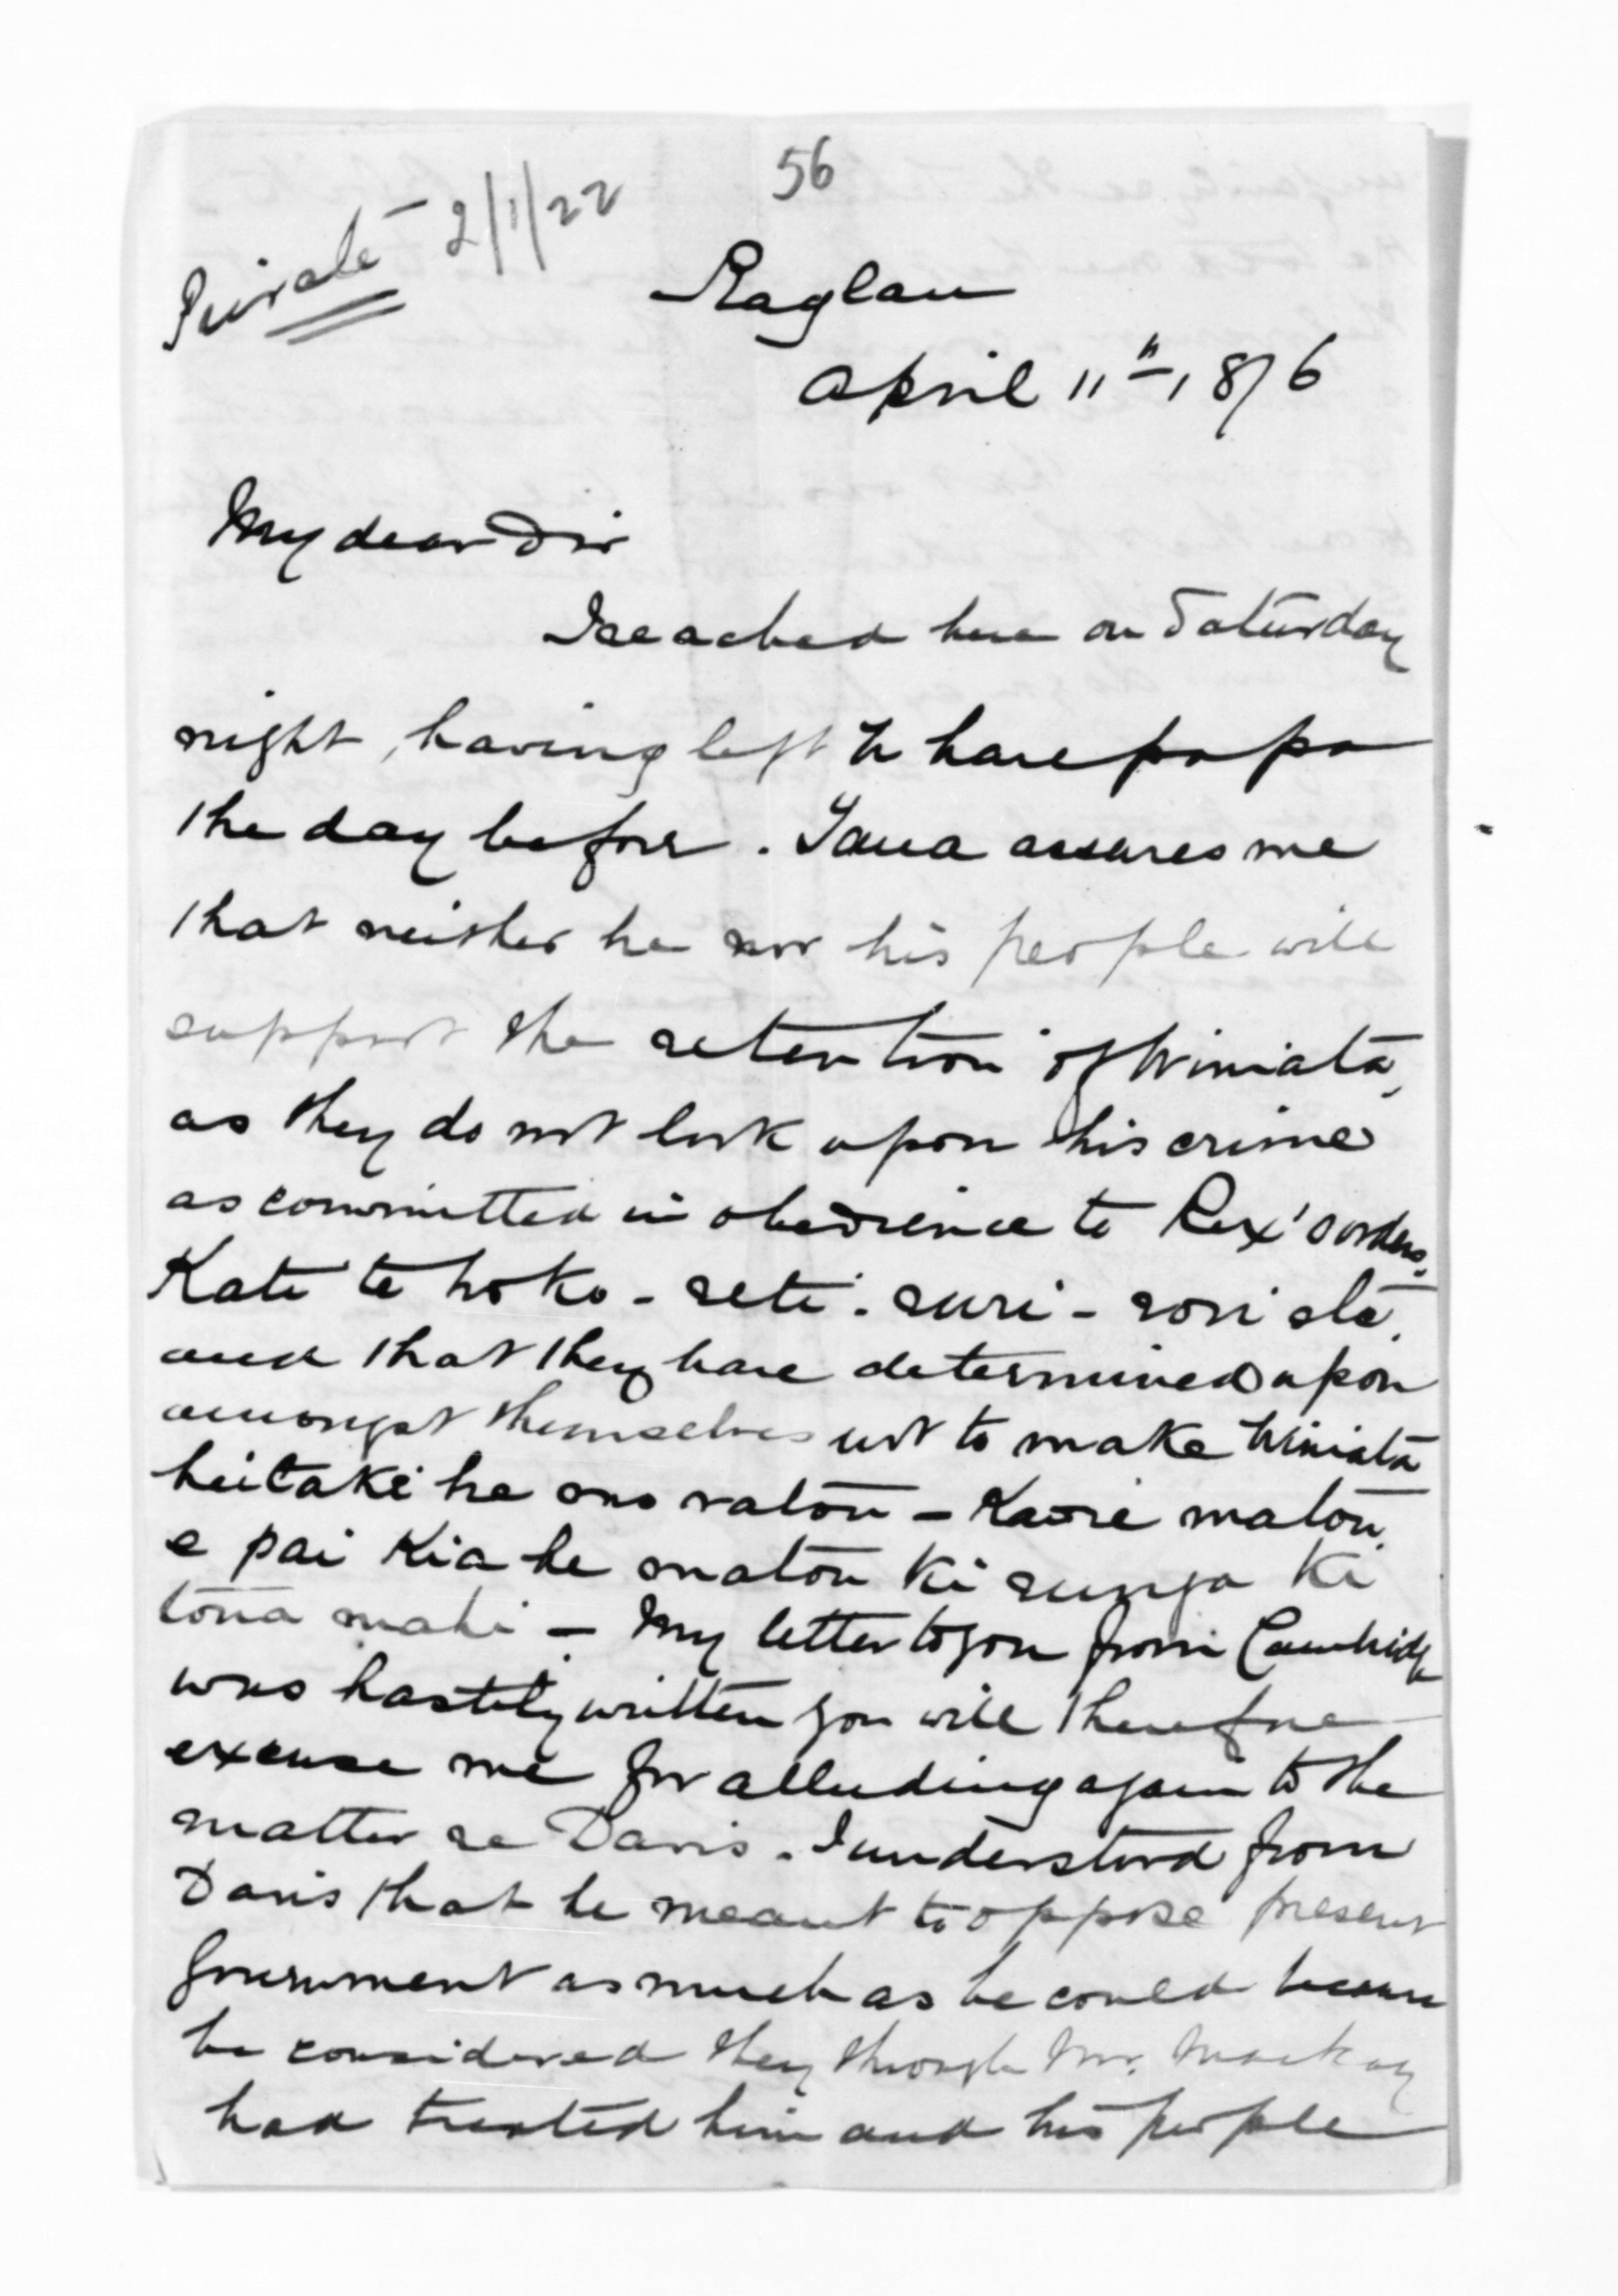 56
Private 2/1/22
Raglan
April 11th 1876
My dear Sir
I reached here on Saturday
night, having left Wharepapa
the day before. Tawa assures me
that neither he nor his people will
support the retention of Winiata,
as they do not look upon his crime
as committed in obedience to Rex's orders.
Kati te hoko - reti - ruri - rori ete.
and that they have determined upon
amongst themselves not to make Winiata
hei take he mo ratou - Kaore matou
e pai Kia he matou Ki runga Ki
tona mahi - My letter to you from Cambridge
was hastily written you will therefore
excuse me for alluding again to the
matter re Davis. I understood from
Davis that he meant to oppose present
Government as much as he could because
he considered they through Mr. Mackay
had treated him and his people